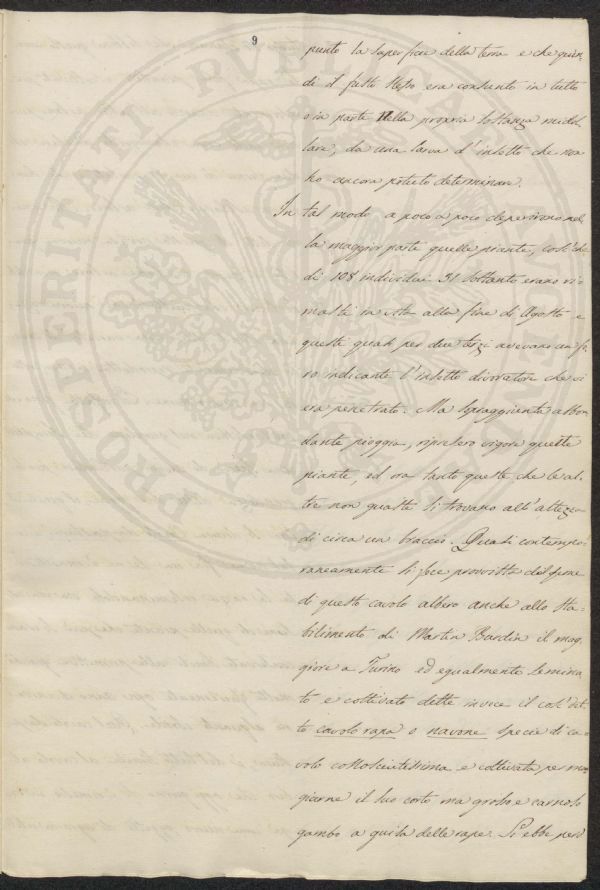 9
punto la superficie della terra e che quin-
di il fusto stesso era consunto in tutto
o in parte nella propria sostanza midol-
lare, da una larva d'insetto che non
ho ancora potuto determinare.
In tal modo a poco a poco deperirono nel-
la maggior parte quelle piante, cosichè
di 108 individui 31 soltanto erano ri-
masti in vita alla fine di Agosto e
questi quasi per due terzi avevano un fo-
ro indicante l'insetto divoratore che vi
era penetrato. Ma sopraggiunta abbon-
dante pioggia, ripresero vigore queste
piante, ed ora tanto queste, che le al-
tre non guaste si trovano all'altezza
di circa un braccio. Quasi contempo-
raneamente si fece provvista del seme
di questo cavolo albero anche allo sta-
bilimento di Martin Burdin il mag-
giore a Turino ed egualmente semina-
to e coltivato dette invece il così det-
to cavolo rapa o navone specie di ca-
volo conosciutissima e coltivata per man-
giarne il suo corto ma grosso e carnoso
gambo a guisa delle rape. Si ebbe però
PROSPERITATI PVBLICAE